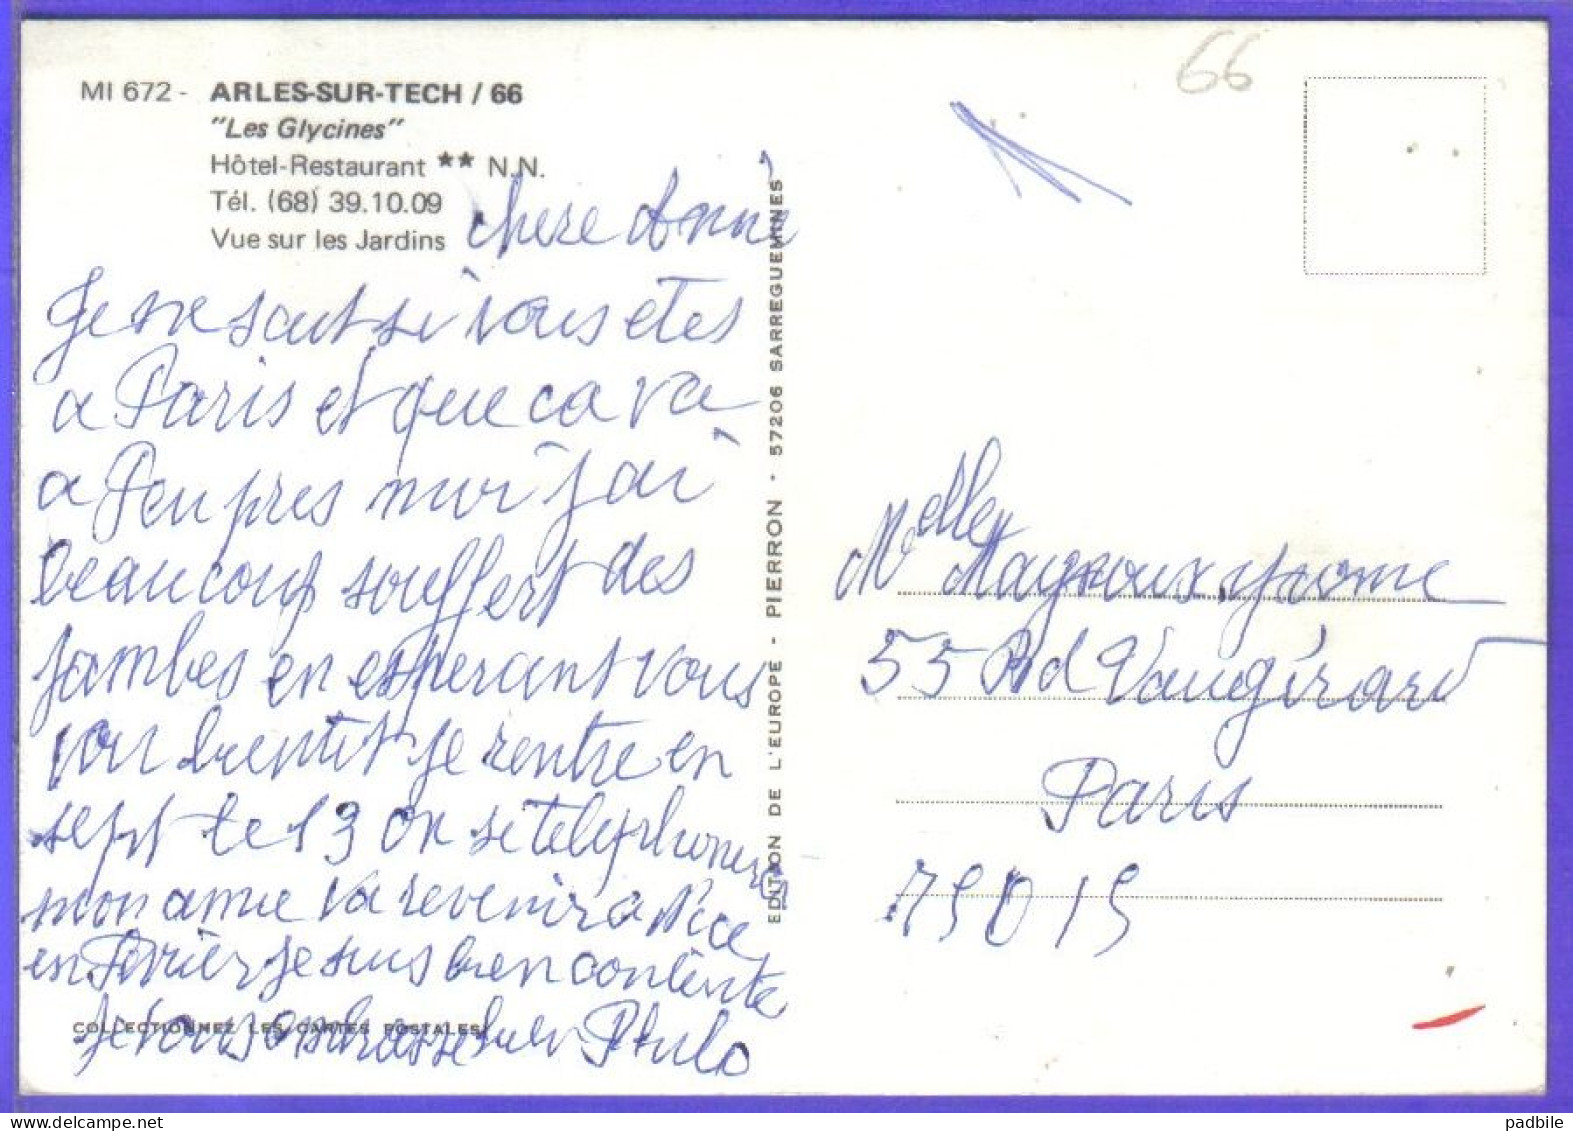 66
MI 672 - ARLES-SUR-TECH / 66
"Les Glycines"
Hôtel-Restaurant ** N.N.
Tél. (68) 39.10.09
Vue sur les Jardins
chere Anni
Je ne sait si vous etes
a Paris et que ca va
a Peu pres moi j'ai
beaucoup souffert des
jambes en esperant vous
voir bientit je rentre en
sept le 13 on se telephonera
mon amie va revenir a Nice
en Fevrier je suis bien contente
je vous embrasse bien
COLLECTIONNEZ LES CARTES POSTALES
EDITION DE L'EUROPE - PIERRON - 57206 SARREGUEMINES
Melle Mayroux Yvonne
55 Bd Vaugirard
Paris
75015
padbile